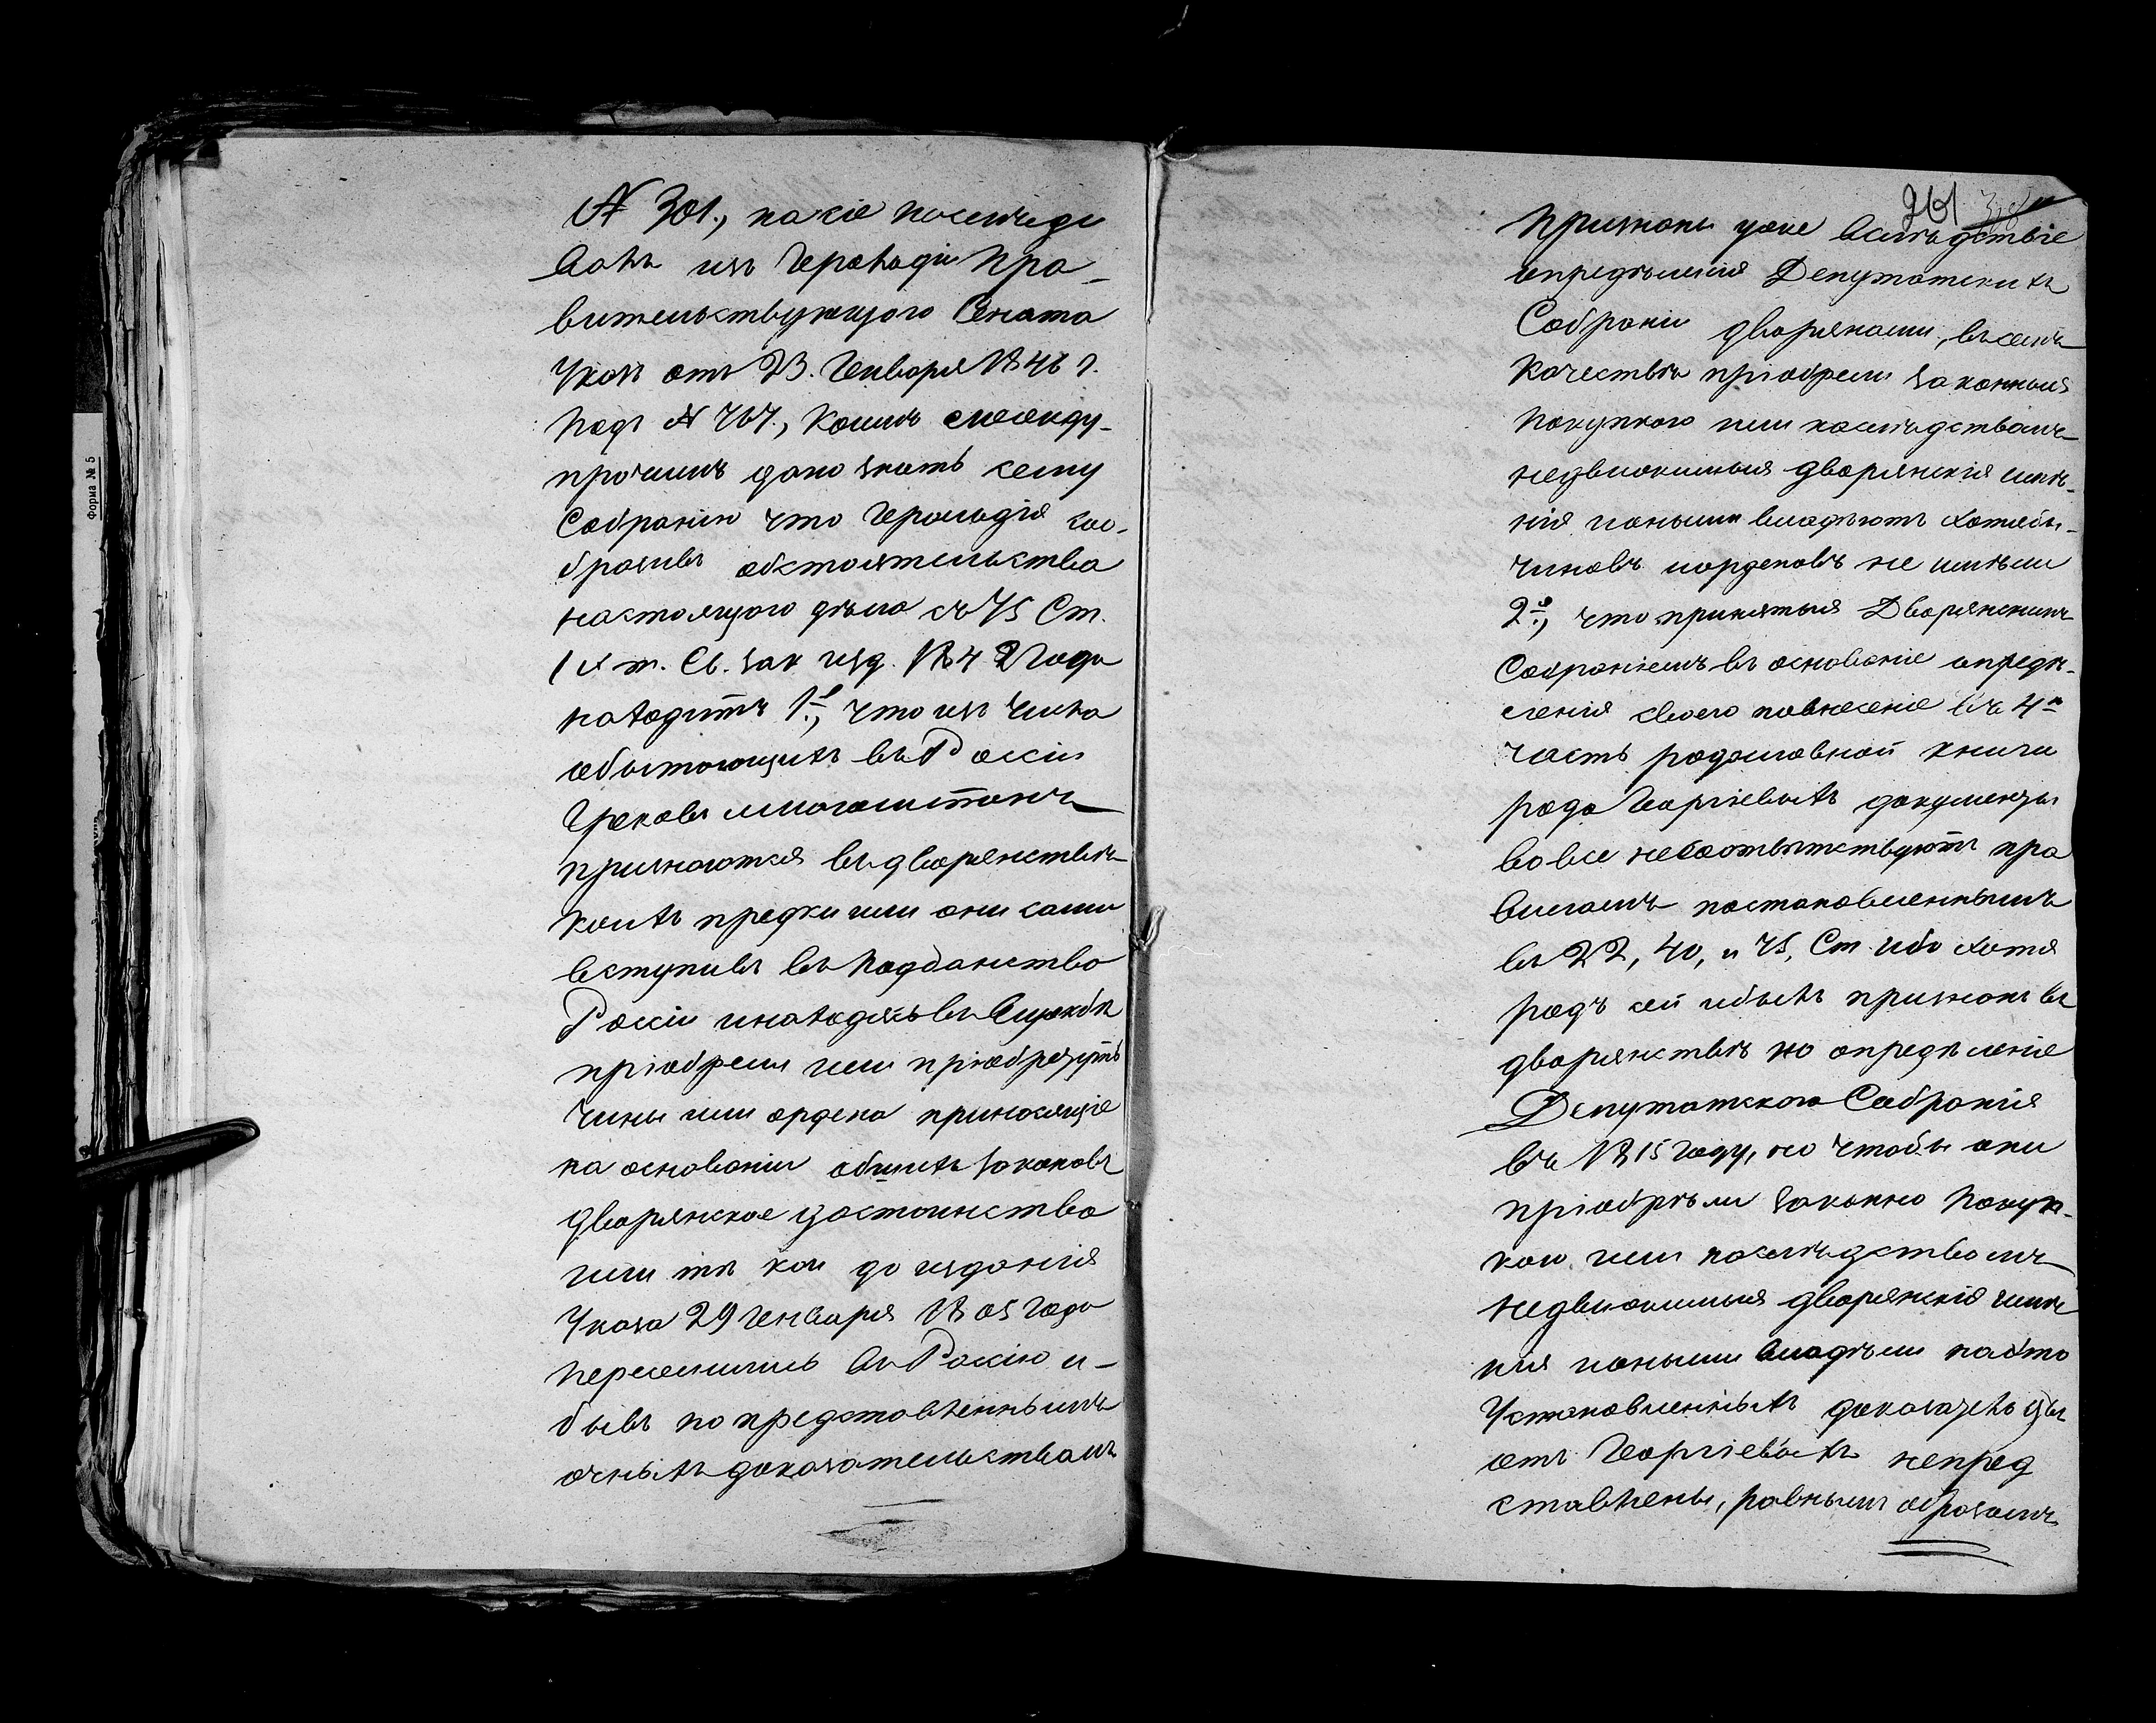 № 301., на сіе последо
валъ изъ Герольдіи Пра-
вительствующаго Сената
Указъ отъ 23. Генваря 1846 г.
подъ № 767., коимъ между-
прочимъ дано знать сему
Собранію что Герольдія соо-
бразивъ обстоятельства
настоящаго дѣла съ 75 Ст.
IX т. Св. зак изд. 1842 года
находитъ 1е, что изъ числа
обитающихъ въ Россіи
Грековъ
признаются въ дворянствѣ
коихъ предки или они сами
вступивъ въ подданство
Россіи и находясь въ службѣ
пріобрели или пріобрезутъ
чины или ордена приносящіе
на основаніи общихъ законовъ
дворянское достоинство
или тѣ кои до изданія
Указа 29 Генваря 1805 года
переселились въ Россію и-
бывъ по представленнымъ
о нихъ доказательствамъ
261
Признаны уже вслѣдствіе
определенія Депутатскихъ
Собраній дворянами, въ семъ
качествѣ пріобрели законныя
покупкою или наследствомъ
недвижимыя дворянскія имѣ-
нія и оными владѣютъ хотябы-
чиновъ и орденовъ не имѣли
2е, что принятыя Дворянскимъ
Собраніемъ въ основаніе опредѣ-
ленія своего о внесеніе въ 4ю
часть родословной книги
рода Георгіевыхъ документы
вовсе несоответствуютъ пра
виламъ постановленнымъ
въ 22, 40, и 75, Ст. ибо хотя
родъ сей и былъ признанъ въ
дворянствѣ по опредѣленіе
Депутатскаго Собранія
въ 1815 году, но чтобы они
пріобрѣли законно покуп-
кою или наследствомъ
недвижимыя дворянскія имѣ
нія и оными владѣли на это
Установленныхъ доказательствъ
отъ Георгіевыхъ непред
ставлены, равнымъ образомъ
Форма № 5